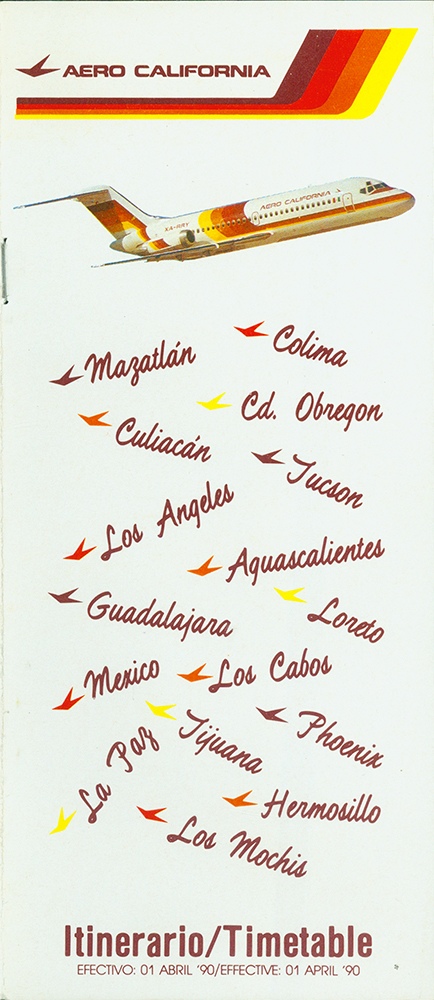 AERO CALIFORNIA
AERO CALIFORNIA
XA-RRY
Colima
Mazatlán
Cd. Obregon
Culiacán
Tucson
Los Angeles
Aguascalientes
Guadalajara
Loreto
Mexico
Los Cabos
Phoenix
Tijuana
La Paz
Hermosillo
Los Mochis
Itinerario/Timetable
EFECTIVO: 01 ABRIL '90/EFFECTIVE: 01 APRIL '90